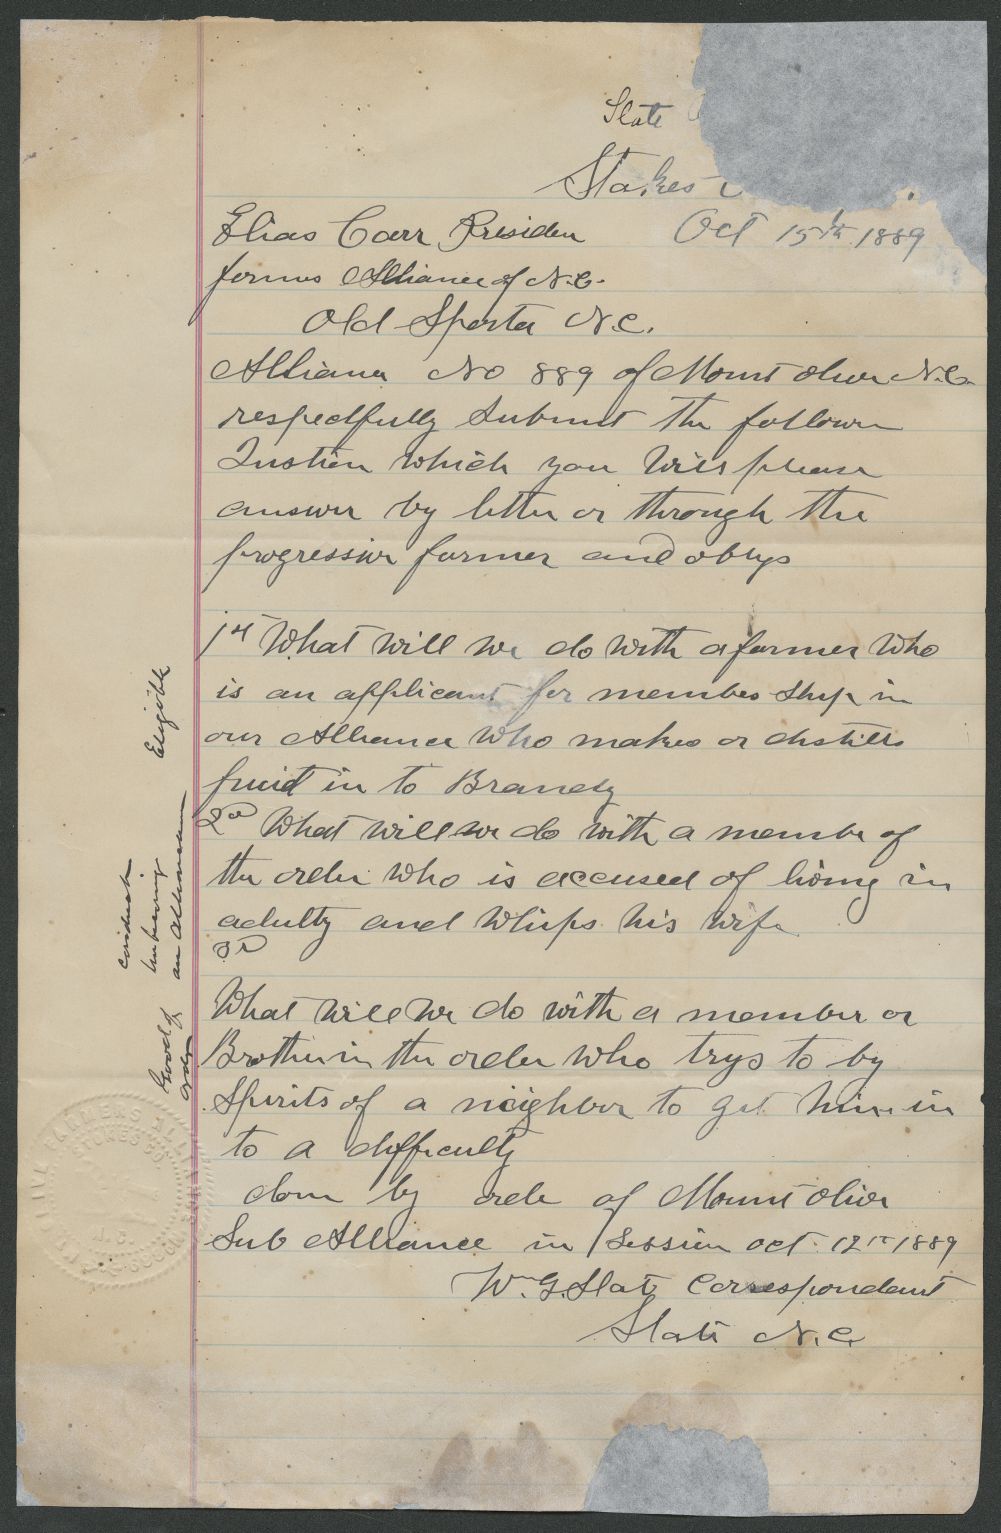 Slate
Stokes
Elias Carr Presiden Oct 15th 1889
formus Alliance of N.C.
Old Sparta N.C.
Alliance No 889 of Mount oliver N.C.
respectfully Submit the followin
Qustion which you will please
answer by letter or through the
progressive farmer and oblige
1st What will we do with a farmer who
is an applicant for member ship in
our Alliance who makes or distills
fruit in to Brandy
2nd What will we do with a member of
the order who is accused of living in
adulty and whips his wife
3d
What will we do with a member or
Brother in the order who trys to by
Spirits of a neighbor to get him in
to a difficulty
done by order of Mount oliver
Sub Alliance in Session oct. 12th 1889
Wm. G. Slate Correspondent
Slate N.C.
Eligible
conduct
unbecoming
an Allianceman
Good of
order
STOKES CO.
N.C.